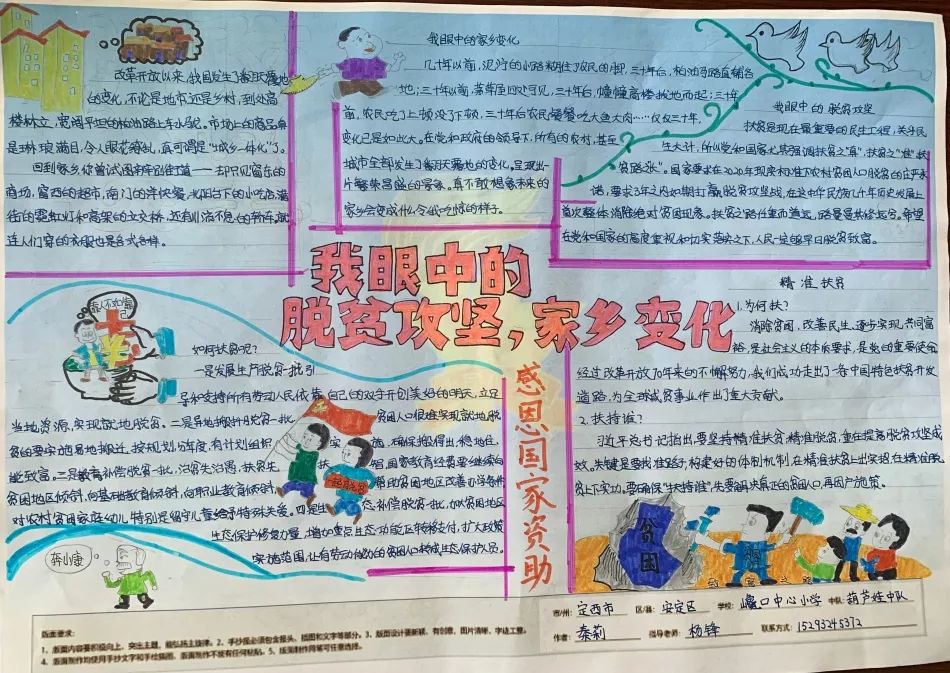 改革开放以来,我国发生了翻天覆地
的变化,不论是城市还是乡村,到处高
楼林立,宽阔平坦的柏油路上车水马龙。市场上的商品更
是琳琅满目,令人眼花缭乱,真可谓是"城乡一体化"了。
回到家乡你尝试图
商场,富西的超市,南门的洋快餐,火车站台下的小吃店,满
街的霓虹灯和高架的立交桥,还有川流不息的轿车,就
连人们穿的衣服也是各式各样。
我眼中的家乡变化
几十年以前,泥泞的小路粘住了农民的脚,三十年后,柏油马路直铺各
地;三十年以前,茅草屋四处可见,三十年后,幢幢高楼拔地而起;三十年
前,农民吃了上顿没下顿,三十年后农民餐餐吃大鱼大肉……仅仅三十年,
变化已是如此大。在党和政府的领导下,所有的农村,甚至
城市全都发生了翻天覆地的变化。呈现出
片繁荣昌盛的景象。真不敢想象未来的
家乡会变成什么令我吃惊的样子。
我眼中的脱贫攻坚
扶贫是现在最重要的民生工程,关乎民
生大计,所以党和国家尤其强调扶贫之"真",扶贫之"准",扶
贫路"张"。国家要求在2020年现実标准下农村贫困人口脱贫的庄严承
诺,要求3年之内如期打赢脱贫攻坚战,在这中华民族几千年历史发展上
首次整体消除绝对贫困现象。扶贫之路任重而道远,路曼曼其修远兮。希望
在党和国家的高度重视和切实落实之下,人民一定够早日脱贫致富。
我眼中的
脱贫攻坚,家乡变化
感恩国家资助
靠人不如靠
如何扶贫呢?
一是发展生产脱贫一批,引
导和支持所有劳动人民依靠自己的双手开创美好的明天,立足
当地资源,实现就地脱贫。二是易地搬扦脱贫一批,贫困人口很难实现就地脱
贫的要实施易地搬迁,按规划、分年度、有计划组织实施,确保搬得出、稳地住、
能致富。三是教育补偿脱贫一批,治贫先治愚,扶贫先扶智,国家教育经费要继续向
贫困地区倾斜、向基础教育倾斜、向职业教育倾斜,帮助贫困地区改善办学条件,
对农村贫困家庭幼儿特别是留守儿童给予特殊关爱。四是生态补偿脱贫一批,加大贫困地区
生态保护修复力量,增加重点生态功能区转移支付,扩大政策
实施范围,让有劳动能力的贫困人口转成生态保护人员。
一起脱贫
奔小康
精准扶贫
1.为何扶?
消除贫困,改善民生,逐步实现共同富
裕,是社会主义的本质要求,是党的重要使命,
经过改革开放70年来的不懈努力,我们成功走出了一条中国特色扶贫开发
道路,为全球减贫事业作出了重大贡献。
2.扶持谁?
习近平总书记指出,要坚持精准扶贫、精准脱贫,重在提高脱贫攻坚成
效,关键是要找准路子,构建好的体制机制,在精准扶贫上出实招、在精准脱
贫上下实功。要确保"扶持准",先要解决真正的贫困人口,再因户施策。
贫困
版面要求:
1、版面内容要积极向上,突出主题,唱弘扬主旋律。2、手抄报必须包含报头、插图和文字等部分。3、版面设计要新颖,有创意,图片清晰,字迹工整。
4、版面制作均使用手抄文字和手绘插图,版面制作不能有任何粘贴。5、版面制作用笔可任意选择。
市/州:定西市 区/县:安定区 学校:巉口中心小学 中队:葫芦娃中队
作者:秦莉 指导老师:杨锋 联系方式:15293245372